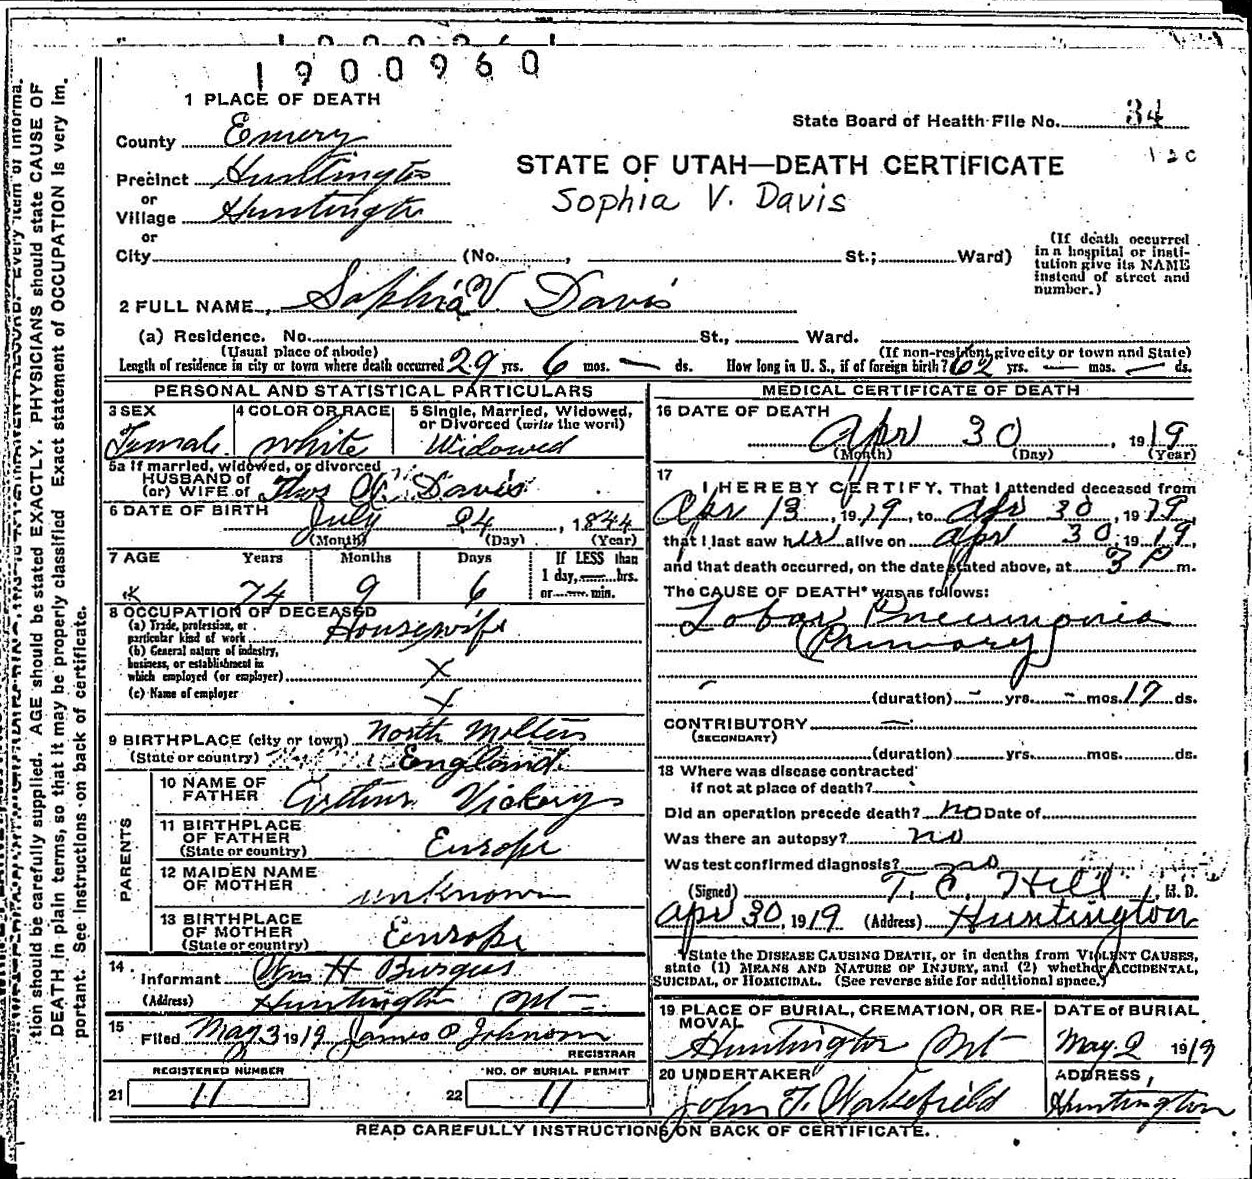 1900960
1 PLACE OF DEATH
County Emery
State Board of Health File No. 34
Precinct Huntington
STATE OF UTAH—DEATH CERTIFICATE
or
Village Huntington
Sophia V. Davis
or
City (No. , St.; Ward)
(If death occurred in a hospital or institution give its NAME instead of street and number.)
2 FULL NAME Sophia V. Davis
(a) Residence. No. St., Ward.
(Usual place of abode) (If non-resident give city or town and State)
Length of residence in city or town where death occurred 29 yrs. 6 mos. — ds. How long in U. S., if of foreign birth? 62 yrs. — mos. — ds.
PERSONAL AND STATISTICAL PARTICULARS
3 SEX Female
4 COLOR OR RACE white
5 Single, Married, Widowed, or Divorced (write the word) Widowed
5a If married, widowed, or divorced
HUSBAND of
(or) WIFE of Thos Davis
6 DATE OF BIRTH July 24, 1844
(Month) (Day) (Year)
7 AGE Years Months Days If LESS than
1 day, hrs.
or min.
74 9 6
8 OCCUPATION OF DECEASED
(a) Trade, profession, or
particular kind of work Housewife
(b) General nature of industry,
business, or establishment in
which employed (or employer) X
(c) Name of employer X
9 BIRTHPLACE (city or town) North Molten
(State or country) England
PARENTS
10 NAME OF
FATHER Vickery
11 BIRTHPLACE
OF FATHER
(State or country) Europe
12 MAIDEN NAME
OF MOTHER unknown
13 BIRTHPLACE
OF MOTHER
(State or country) Europe
14 Informant Wm H Burgess
(Address) Huntington Ut
15 Filed May 3 1919 James P Johnson
REGISTRAR
REGISTERED NUMBER
21 11
NO. OF BURIAL PERMIT
22 11
MEDICAL CERTIFICATE OF DEATH
16 DATE OF DEATH
Apr 30, 1919
(Month) (Day) (Year)
17
I HEREBY CERTIFY, That I attended deceased from
Apr 13, 1919, to Apr 30, 1919,
that I last saw her alive on Apr 30, 1919,
and that death occurred, on the date stated above, at 3 P m.
The CAUSE OF DEATH* was as follows:
Lobar Pneumonia
(Primary)
(duration) - yrs. - mos. 17 ds.
CONTRIBUTORY —
(SECONDARY)
(duration) yrs. mos. ds.
18 Where was disease contracted
if not at place of death?
Did an operation precede death? no Date of
Was there an autopsy? no
Was test confirmed diagnosis? no
(Signed) T. C. Hill, M. D.
Apr 30, 1919 (Address) Huntington
*State the DISEASE CAUSING DEATH, or in deaths from VIOLENT CAUSES,
state (1) MEANS AND NATURE OF INJURY, and (2) whether ACCIDENTAL,
SUICIDAL, or HOMICIDAL. (See reverse side for additional space.)
19 PLACE OF BURIAL, CREMATION, OR RE-
MOVAL
Huntington Ut
DATE of BURIAL
May 2 1919
20 UNDERTAKER
John T. Wakefield
ADDRESS,
Huntington
READ CAREFULLY INSTRUCTIONS ON BACK OF CERTIFICATE.
tion should be carefully supplied. AGE should be stated EXACTLY. PHYSICIANS should state CAUSE OF
DEATH in plain terms, so that it may be properly classified Exact statement of OCCUPATION is very im-
portant. See instructions on back of certificate.